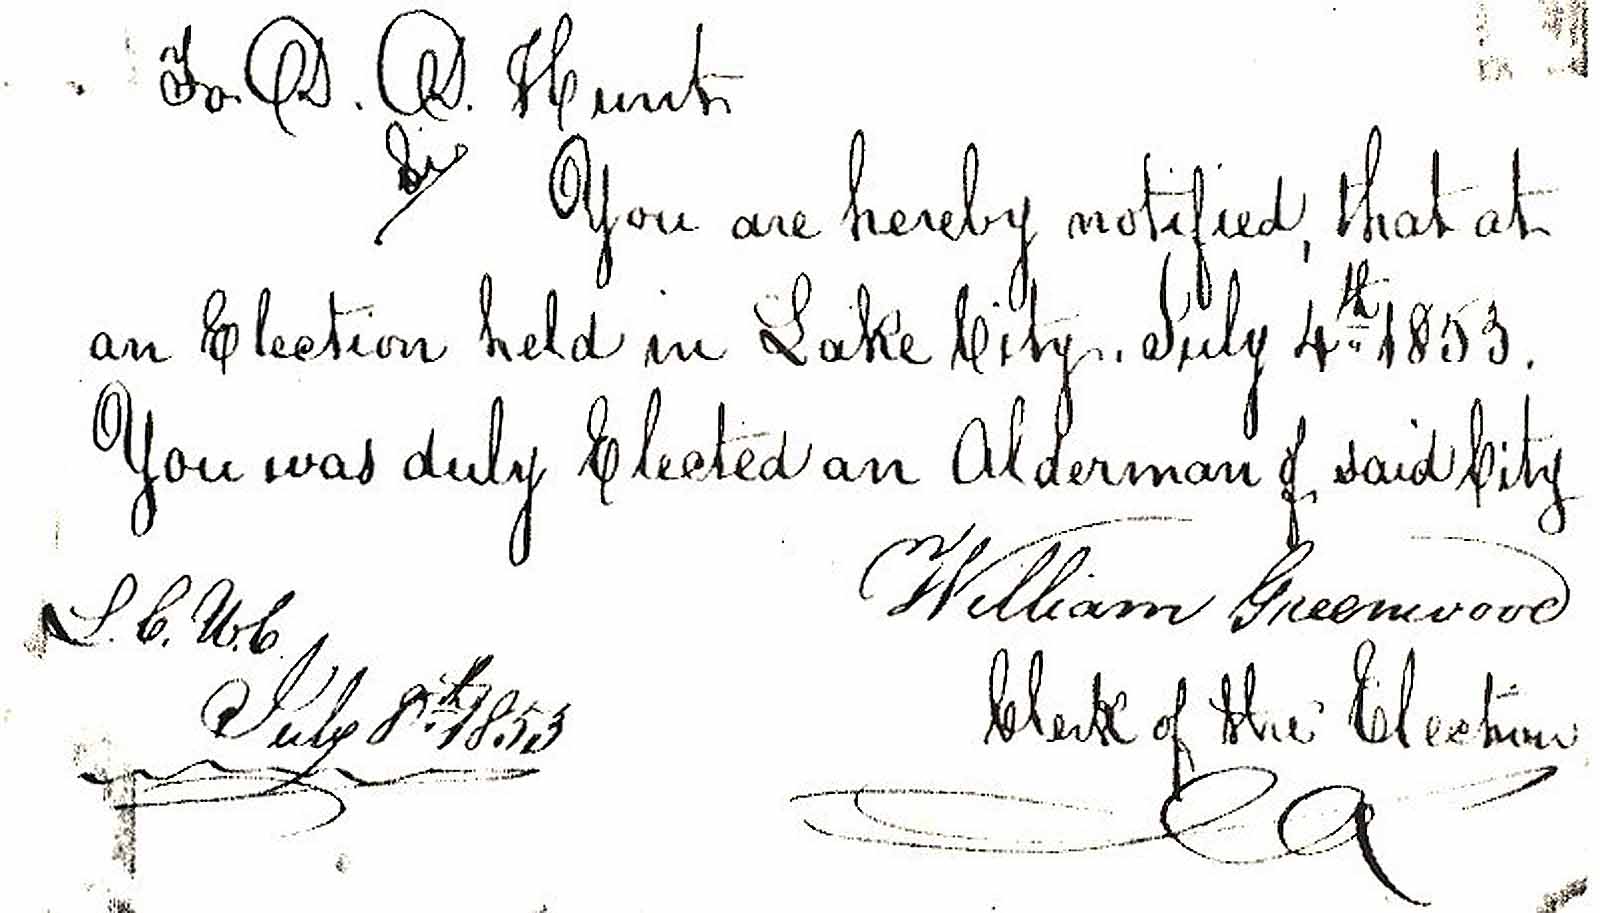 To. D. D. Hunt
Sir
You are hereby notified, that at
an Election held in Lake City. July 4th 1853.
You was duly Elected an Alderman of said City
William Greenwood
L. C. U. C.
July 8th 1853
Clerk of the Election